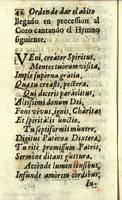 42 Orden de dar el abito
llegado en procession al
Coro cantando el Hymno
siguiente.
VEni, creator Spiritus,
Mentes tuorum visita,
Imple superna gratia,
Quæ tu creasti, pectora.
Qui diceris paraclitus,
Altissimi donum Dei,
Fons vivus, ignis, Charitas
Et spiritalis unctio.
Tu septiformis munere,
Digitus Paternæ Dexteræ,
Tu rite promissum Patris,
Sermone ditans guttura.
Accende lumen sensibus,
Infunde amorem cordibus,